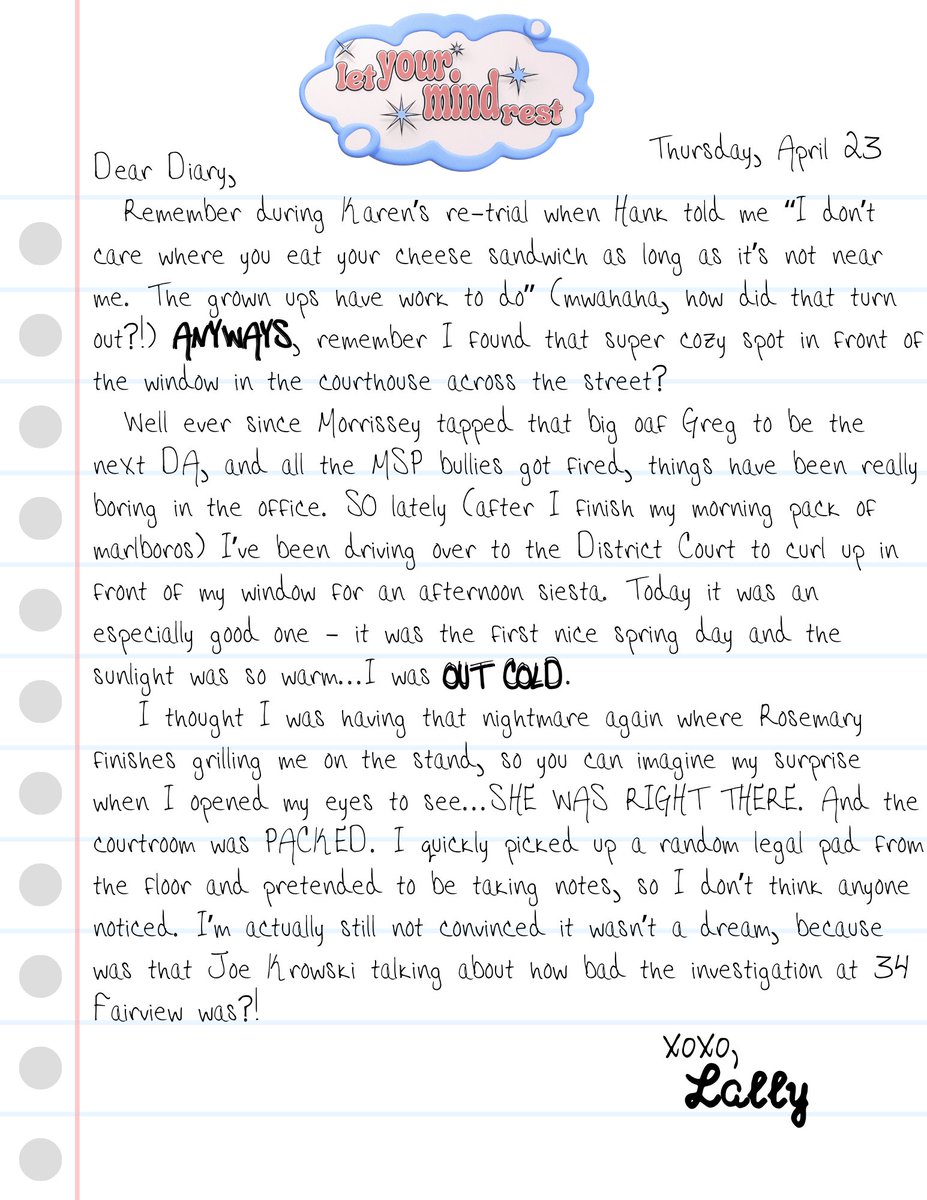 let your. mind rest
Thursday, April 23
Dear Diary,
Remember during Karen's re-trial when Hank told me "I don't
care where you eat your cheese sandwich as long as it's not near
me. The grown ups have work to do" (mwahaha, how did that turn
out?!) ANYWAYS, remember I found that super cozy spot in front of
the window in the courthouse across the street?
Well ever since Morrissey tapped that big oaf Greg to be the
next DA, and all the MSP bullies got fired, things have been really
boring in the office. SO lately (after I finish my morning pack of
marlboros) I've been driving over to the District Court to curl up in
front of my window for an afternoon siesta. Today it was an
especially good one - it was the first nice spring day and the
sunlight was so warm...I was OUT COLD.
I thought I was having that nightmare again where Rosemary
finishes grilling me on the stand, so you can imagine my surprise
when I opened my eyes to see...SHE WAS RIGHT THERE. And the
courtroom was PACKED. I quickly picked up a random legal pad from
the floor and pretended to be taking notes, so I don't think anyone
noticed. I'm actually still not convinced it wasn't a dream, because
was that Joe Krowski talking about how bad the investigation at 34
Fairview was?!
xoxo,
Lally